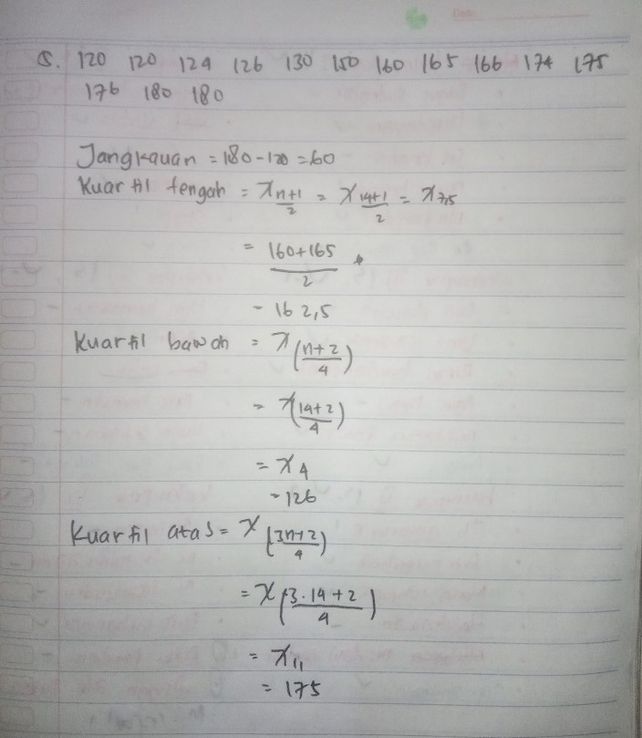 5. 120 120 124 126 130 150 160 165 166 174 175
176 180 180
Jangkauan = 180-120 = 60
Kuartil tengah = x n+1/2 = x 14+1/2 = x 7,5
= 160+165/2
= 162,5
Kuartil bawah = x (n+2/4)
= x (14+2/4)
= x 4
= 126
Kuartil atas = x (3n+2/4)
= x (3.14+2/4)
= x 11
= 175